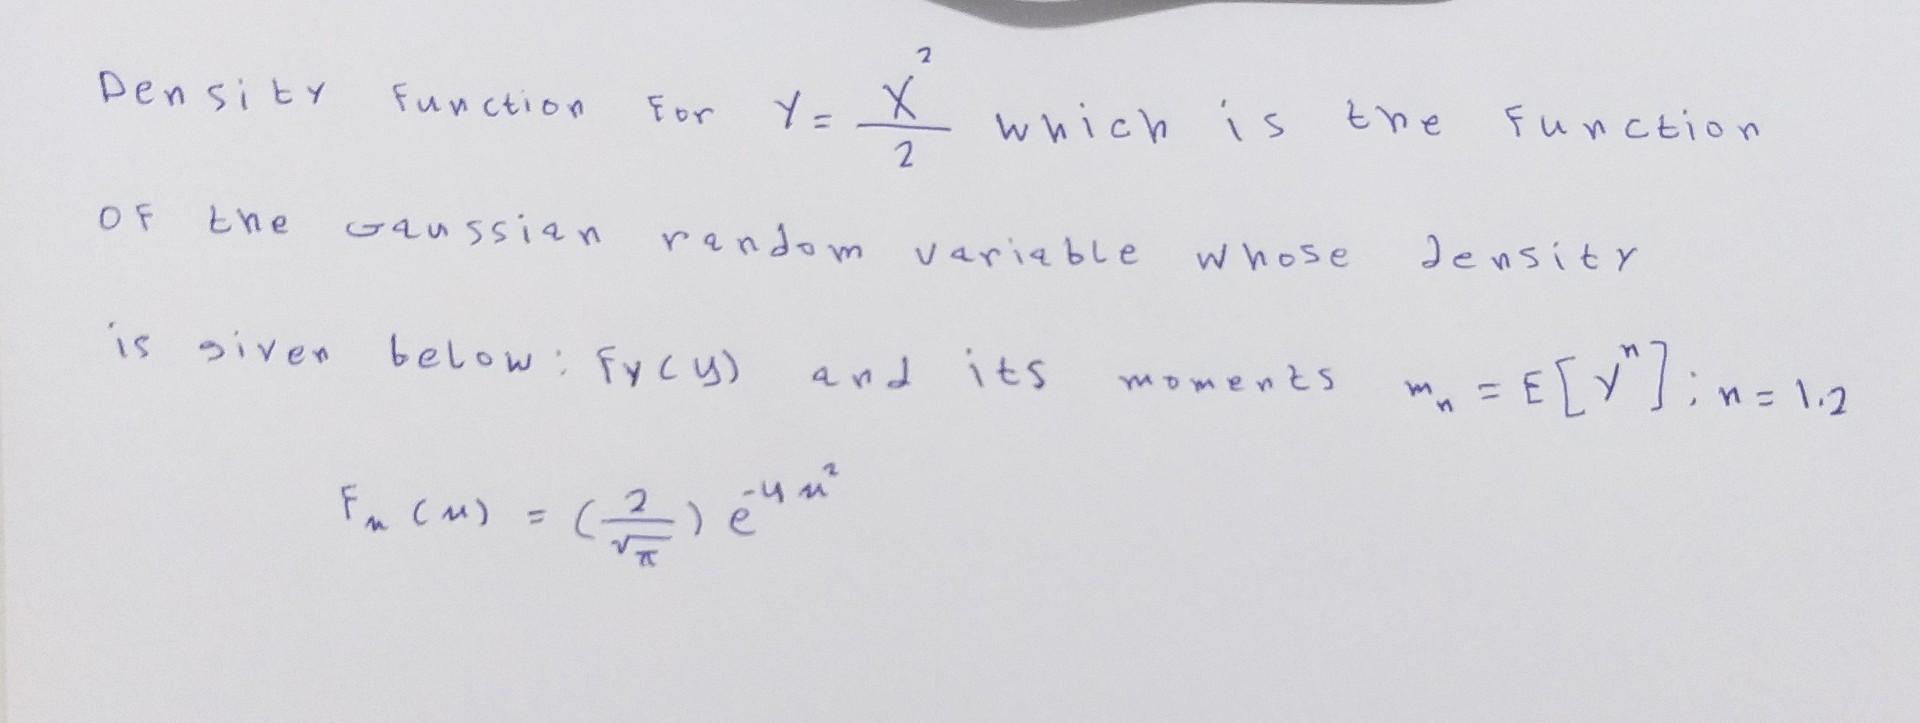 Density function for Y = X²/2 which is the function
of the Gaussian random variable whose density
is given below: fy(y) and its moments mₙ = E[Yⁿ]; n = 1.2
Fₓ(x) = (2/√π) e^-4x²